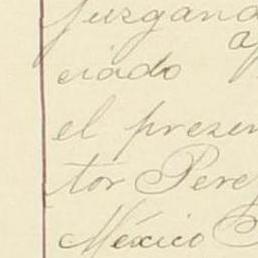 juzgand
ciado
el presen
tor Pere
México